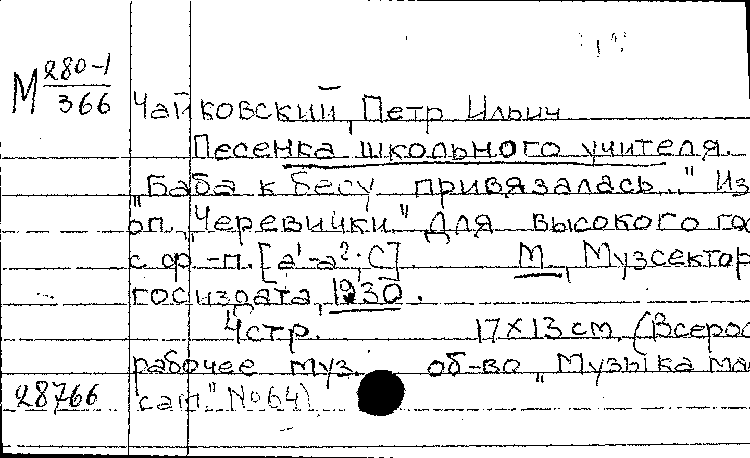 М 280-1/366
Чайковский, Петр Ильич
Песенка школьного учителя.
"Баба к бесу привязалась..." Из
оп. "Черевички." Для высокого го
с ф.-п. [а¹-а²; С]. М., Музсектор
госиздата, 1930.
4 стр. 17×13 см. (Всерос
рабочее муз. об-во "Музыка ма
28766 сам" № 64)